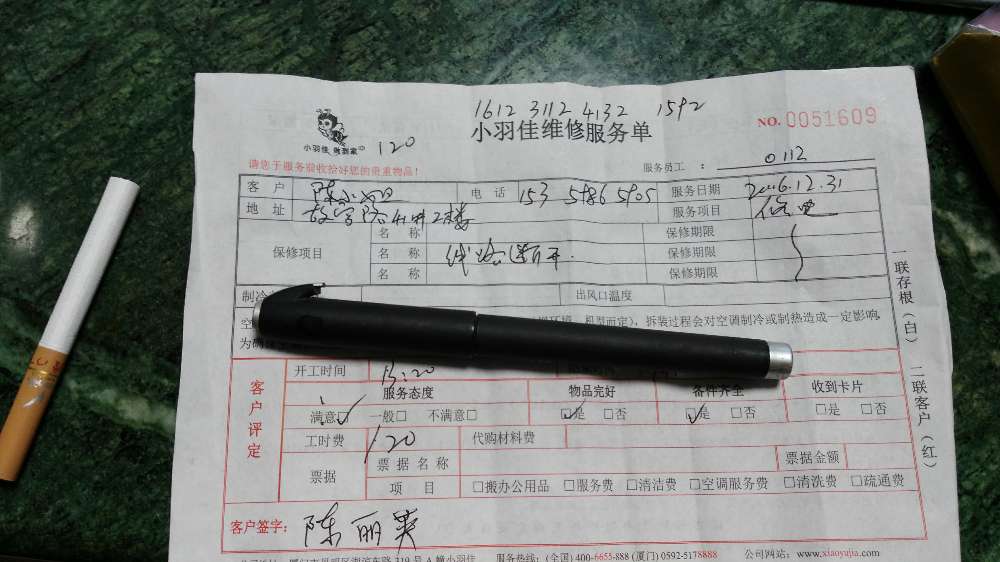 1612 3112 4132 1592
小羽佳维修服务单
NO. 0051609
小羽佳 做到家
120
请您于服务前收拾好您的贵重物品!
服务员工 : 0112
客 户 陈小姐 电 话 153 5986 5905 服务日期 2016.12.31
地 址 服务项目 修电
保修项目 名 称 保修期限
名 称 线路断开. 保修期限
名 称 保修期限
制冷 出风口温度
空 机器而定), 拆装过程会对空调制冷或制热造成一定影响,
为确
客户评定
开工时间 13:20
服务态度 物品完好 备件齐全 收到卡片
满意□ 一般□ 不满意□ □是 □否 □是 □否 □是 □否
工时费 120 代购材料费
票据 票 据 名 称 票据金额
项 目 □搬办公用品 □服务费 □清洁费 □空调服务费 □清洗费 □疏通费
客户签字: 陈丽英
服务热线: (全国) 400-6655-888 (厦门) 0592-5178888 公司网站: www.xiaoyujia.com
一联存根(白) 二联客户(红)